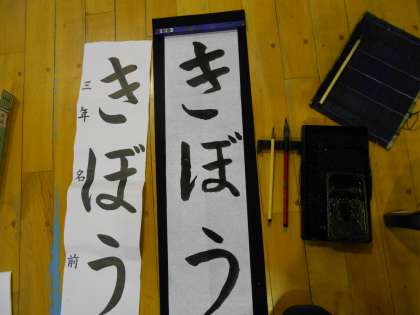 きぼう
きぼう
三年 名前